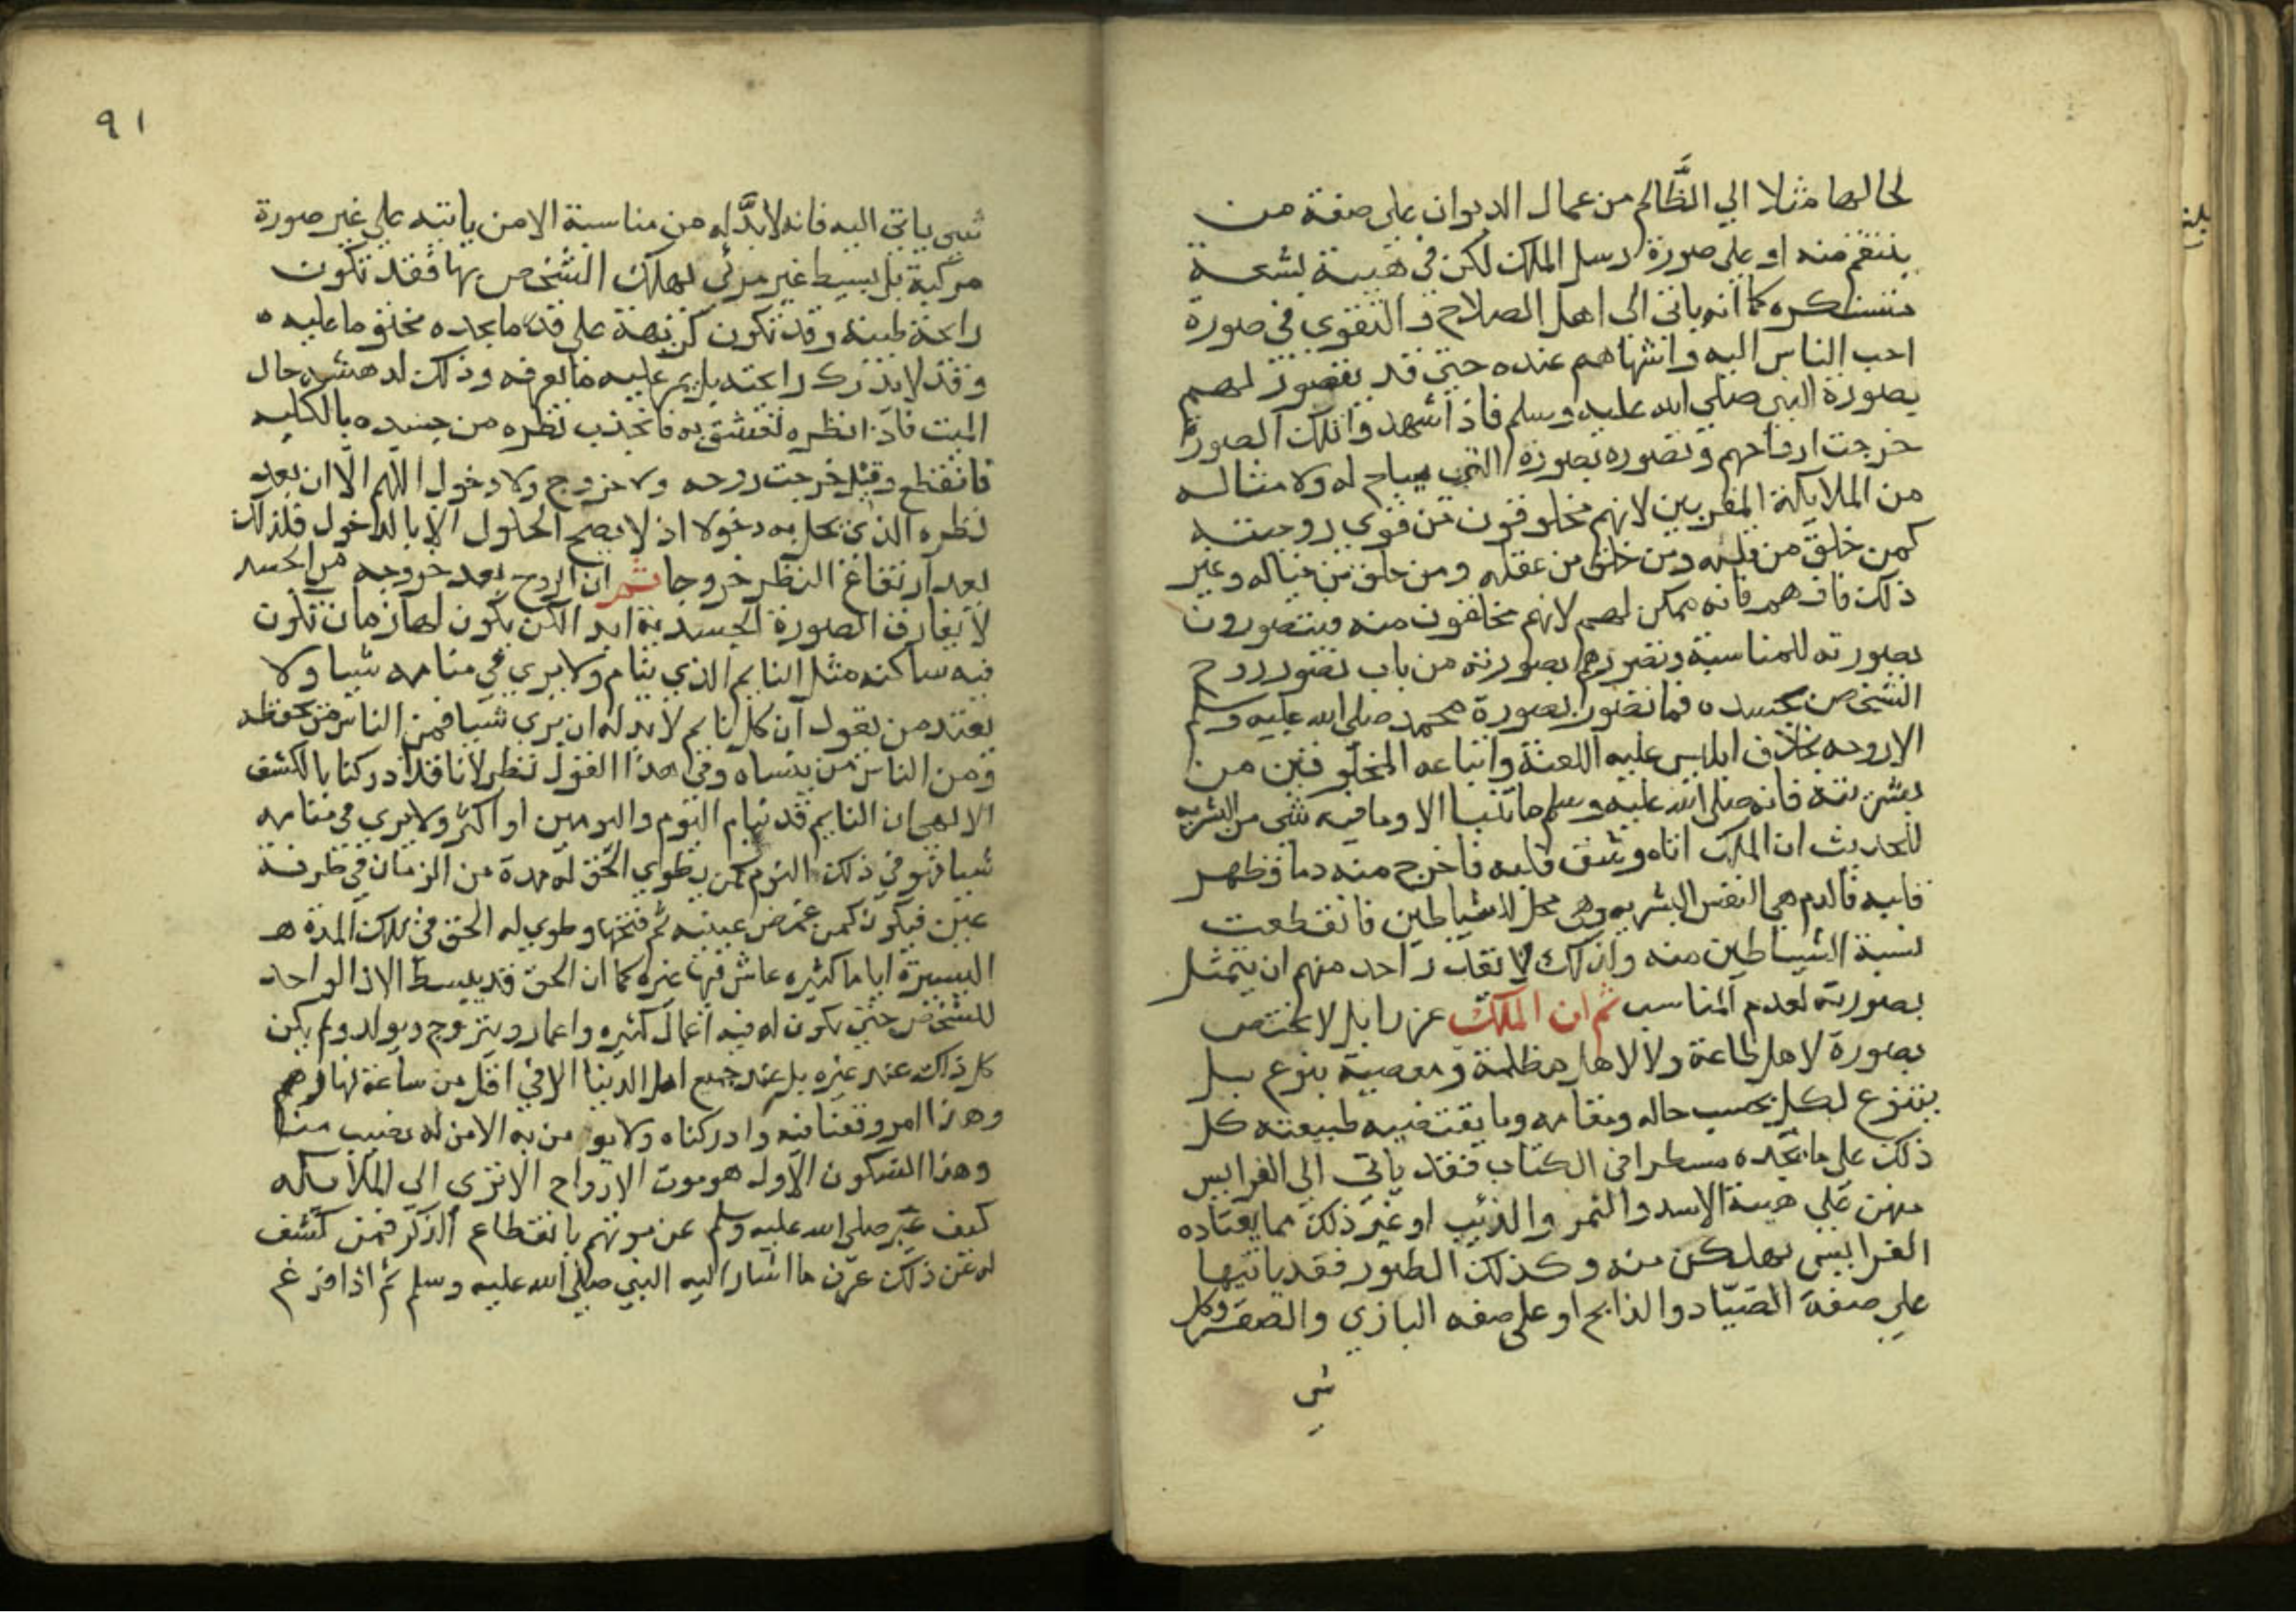 لحالها مثلا الي الظَّالم من عمال الديوان على صفة من
ينتقم منه او على صورة رسل الملك لكن في هيية بشعة
مستنكره كما انه ياتى الى اهل الصلاح و التقوى في صورة
احب الناس اليه واشهاهم عنده حتى قد يتصور لهم
بصورة النبي صلى الله عليه وسلم فاذا شهدوا تلك الصورة
خرجت ارواحهم وتصوره بصورة النبي مباح له ولامثاله
من الملايكة المقربين لانهم مخلوقون من قوي روحيته
كمن خلق من قلبه ومن خلق من عقله ومن خلق من خياله وغير
ذلك فافهم فانه ممكن لهم لانهم مخلقون منه فيتصورون
بصورته للمناسبة وتصورهم بصورته من باب تصور روح
الشخص بجسده فما تصور بصورة محمد صلى الله عليه وسلم
الاروحه بخلاف ابليس عليه اللعنة واتباعه المخلوقين من
بشريته فانه صلى الله عليه وسلم ما تنبا الا وما فيه شي من البشريه
للحديث ان الملك اتاه وشق قلبه فاخرج منه دما فطهر
قلبه فالدم هي النفس البشريه وهي محل الشياطين فانقطعت
نسبة الشياطين منه ولذلك لا يقدر احد منهم ان يتمثل
بصورته لعدم المناسب ثم ان الملك عزرايل لا يختص
بصورة لاهل طاعة ولا لاهل مظلمة ومعصية بنوع بل
يتنوع لكل بحسب حاله ومقامه وما يقتضيه طبيعته كل
ذلك على ما يجده مسطرا في الكتاب فقد ياتي الي الفرايس
منهن على هيية الاسد والنمر والذئيب او غير ذلك مما يعتاده
الفرايس يهلكن منه وكذلك الطيور فقد ياتيها
على صفة الصيّاد والذابح او على صفه البازي والصقر وكل
شي
بلغ
٩١
شي ياتي اليه فانه لابدَّ له من مناسبة الا من ياتيه على غير صورة
مركبة بل بسيط غير مرئي لهلك الشخص بها فقد تكون
رايحة طيبة وقد تكون كريهة على قدر ما يجده مخلقو ما عليه
وقد لا يدرك رايحته بل يمر عليه ما يعرفه وذلك لدهشة حال
الميت فاذا نظره تعشق به فانجذب نظره من جسده بالكليه
فانقطع وقيل خرجت روحه ولا خروج ولا دخول اللهم الا ان يعد
نظره الذي يحل به دخولا اذ لا يصح الحلول الا بالدخول فلذلك
يعد ارتفاع النظر خروجا ثم ان الروح بعد خروجه من الجسد
لا يفارق الصورة الجسدية ابدا لكن يكون لها زمان تكون
فيه ساكنه مثل النايم الذي ينام ولا يري في منامه شيا ولا
يعتد من يقول ان كل نايم لابد له ان يري شيا فمن الناس من يحفظه
ومن الناس من ينساه وفي هذا القول نظر لانا قد ادركنا بالكشف
الالهي ان النايم قد ينام اليوم واليومين او اكثر ولا يري في منامه
شيا فهو في ذلك النوم كمن يطوي الحق له مدة من الزمان في طرفة
عين فيكون كمن غمض عينيه ثم فتحها وطوي له الحق في تلك المدة
اليسيرة اياما كثيره عاش فيها غيره كما ان الحق قد يبسط الان الواحد
للشخص حتى يكون له فيه اعمال كثيره واعمار ويتزوج ويولد ولم يكن
كل ذلك عند غيره بل عند جميع اهل الدنيا الا في اقل من ساعة نهارهم
وهذا امر وقعنا فيه وادركناه ولا يومن به الا من له نصيب منا
وهذا السكون الاول هو موت الارواح الا ترى الى الملايكه
كيف عبّر صلى الله عليه وسلم عن موتهم بانقطاع الذكر فمن كشف
له عن ذلك عرف ما اشار اليه النبي صلى الله عليه وسلم ثم اذا فرغ